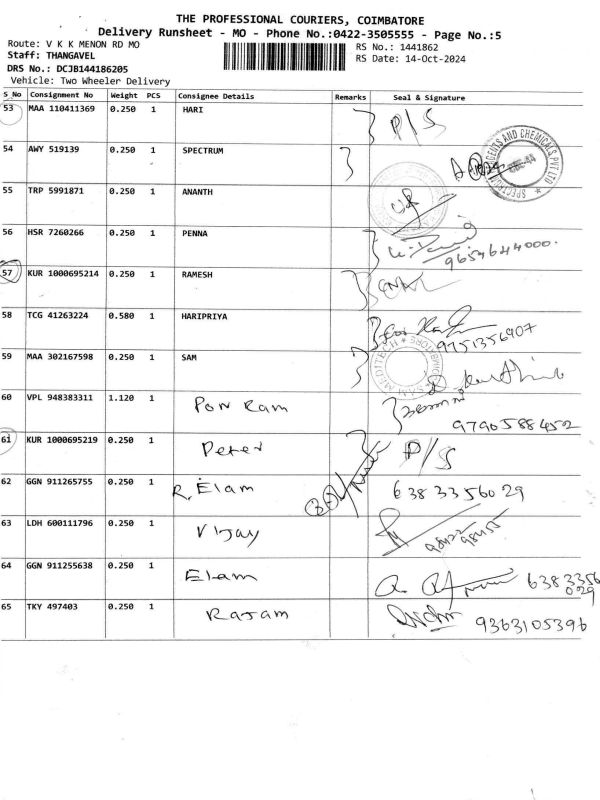 THE PROFESSIONAL COURIERS, COIMBATORE
Delivery Runsheet - MO - Phone No.:0422-3505555 - Page No.:5
Route: V K K MENON RD MO
RS No.: 1441862
Staff: THANGAVEL
RS Date: 14-Oct-2024
DRS No.: DCJB144186205
Vehicle: Two Wheeler Delivery
S No Consignment No Weight PCS Consignee Details Remarks Seal & Signature
53 MAA 110411369 0.250 1 HARI P/S
54 AWY 519139 0.250 1 SPECTRUM
55 TRP 5991871 0.250 1 ANANTH
56 HSR 7260266 0.250 1 PENNA
9654644000.
57 KUR 1000695214 0.250 1 RAMESH
58 TCG 41263224 0.580 1 HARIPRIYA
9751356907
59 MAA 302167598 0.250 1 SAM
60 VPL 948383311 1.120 1 Pon Ram
9790588452
61 KUR 1000695219 0.250 1 Peter P/S
62 GGN 911265755 0.250 1 R. Elam 6383356029
63 LDH 600111796 0.250 1 Vijay 98422 98455
64 GGN 911255638 0.250 1 Elam 6383356029
65 TKY 497403 0.250 1 Rajam 9363105396